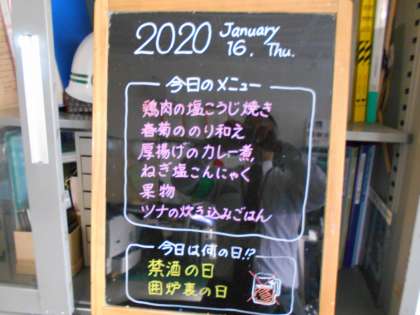 2020 January
16. Thu.
今日のメニュー
鶏肉の塩こうじ焼き
春菊ののり和え
厚揚げのカレー煮
ねぎ塩こんにゃく
果物
ツナの炊き込みごはん
今日は何の日!?
禁酒の日
囲炉裏の日